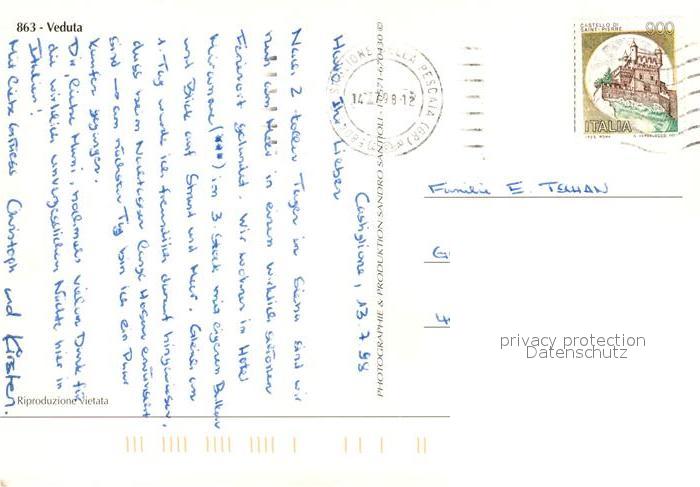 863 - Veduta
Castiglione, 13.7.98
Hallo Ihr Lieben
Nach 2 tollen Tagen in Siena sind wir
nun am Meer in einem wirklich schönen
Ferienort gelandet. Wir wohnen im Hotel
Miramare (***) im 3. Stock mit eigenem Balkon
und Blick auf Strand und Meer. Gleich am
1. Tag wurde ich freundlich darauf hingewiesen,
dass beim Nachtessen lange Hosen erwünscht
sind → am nächsten Tag bin ich ein Paar
kaufen gegangen.
Dir, liebe Mami, nochmals vielen Dank für
die wirklich unvergesslichen Nächte hier in
Italien!
Mit lieben Grüssen Christoph und Kirsten.
Riproduzione vietata
PHOTOGRAPHIE & PRODUKTION SANDRO SANTIOLI - 0571-670430 ©
CASTIGLIONE DELLA PESCAIA (GR)
14.7.98-12
CASTELLO DI
SAINT-PIERRE
900
ITALIA
Familie E. TSCHAN
privacy protection
Datenschutz